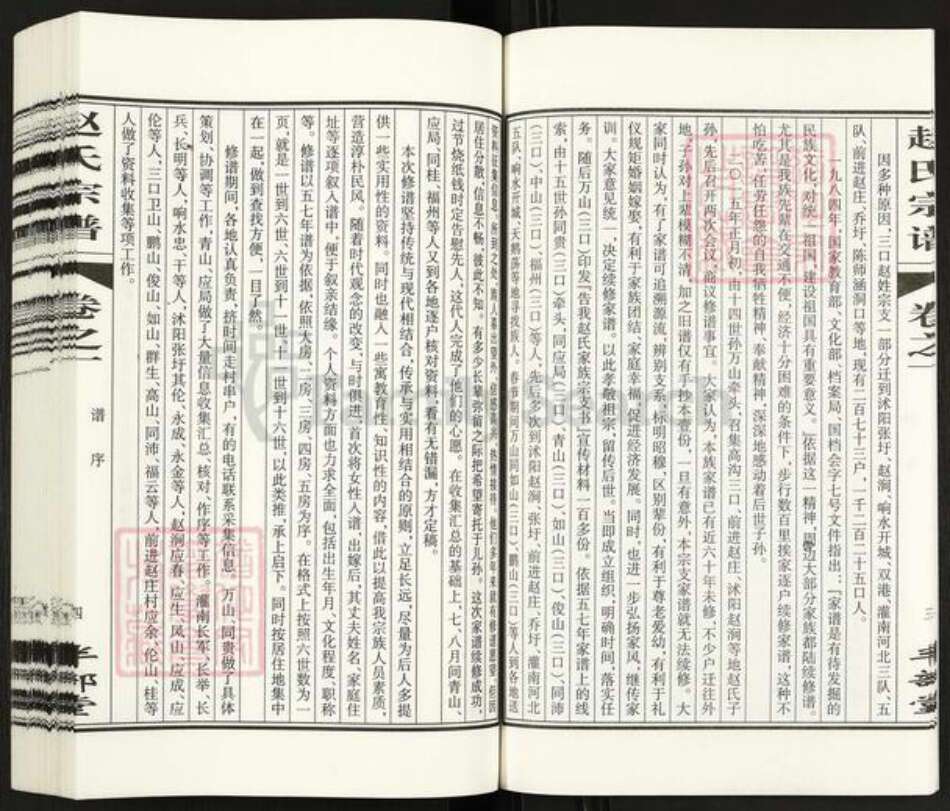 因多种原因，三口赵姓宗支一部分迁到沭阳张圩、赵涧、响水开城、双港、灌南河北三队、五
队，前进赵庄、乔圩、陈师涵洞口等地，现有二百七十三户，一千二百二十五口人。
一九八四年，国家教育部、文化部、档案局、国档会字七号文件指出：“家谱是有待发掘的
民族文化，对统一祖国、建设祖国具有重要意义。”依据这一精神，周边大部分家族都陆续修谱。
尤其是我族先辈在交通不便、经济十分困难的条件下，步行数百里挨家逐户续修家谱，这种不
怕吃苦、任劳任怨的自我牺牲精神、奉献精神，深深地感动着后世子孙。
二〇一五年正月初，由十四世孙万山牵头，召集高沟三口、前进赵庄、沭阳赵涧等地赵氏子
孙，先后召开两次会议，商议修谱事宜。大家认为，本族家谱已有近六十年未修，不少户迁往外
地，子孙对上辈模糊不清，加之旧谱仅有手抄本壹份，一旦有意外，本宗支家谱就无法续修。大
家同时认为，有了家谱可追溯源流，辨别支系，标明昭穆，区别辈份，有利于尊老爱幼，有利于礼
仪规矩婚姻嫁娶，有利于家族团结、家庭幸福，促进经济发展。同时，也进一步弘扬家风，继传家
训。大家意见统一，决定续修家谱。以此孝敬祖宗，留传后世。当即成立组织，明确时间，落实任
务。随后万山（三口）印发“告我赵氏家族宗支书”宣传材料一百多份，依据五七年家谱上的线
索，由十五世孙同贵（三口）牵头，同应局（三口）、青山（三口）、如山（三口）、俊山（三口）、同沛
（三口）、中山（三口）、福州（三口）等人，先后多次到沭阳赵涧、张圩、前进赵庄、乔圩、灌南河北
五队、响水开城、天鹅荡等地寻找族人。春节期间万山同如山（三口）、鹏山（三口）等人到各地送
资料征集信息，所到之处，族人奉出望外，倍感高兴，热情接待。他们多年来就有修谱愿望，但因
居住分散，信息不畅，彼此不知。有多少长辈弥留之际把希望寄托于儿孙。这次家谱续修成功，
过节烧纸钱时定告慰先人，这代人完成了他们的心愿。在收集汇总的基础上，七、八月间青山、
应局、同桂、福州等人又到各地逐户核对资料，看有无错漏，方才定稿。
本次修谱坚持传统与现代相结合，传承与实用相结合的原则，立足长远，尽量为后人多提
供一些实用性的资料。同时也融入一些寓教育性、知识性的内容，借此以提高我宗族人员素质，
营造淳朴民风。随着时代观念的改变，与时俱进，首次将女性入谱，出嫁后，其丈夫姓名、家庭住
址等逐项叙入谱中，便于叙亲结缘。个人资料方面也力求全面，包括出生年月、文化程度、职称
等。修谱以五七年谱为依据，依照大房、二房、三房、四房、五房为序。在格式上按照六世数为一
页，就是一世到六世、六世到十一世、十一世到十六世，以此类推，承上启下。同时按居住地集中
在一起，做到查找方便，一目了然。
修谱期间，各地认真负责，挤时间走村串户，有的电话联系采集信息。万山、同贵做了具体
策划、协调等工作，青山、应局做了大量信息收集汇总、核对、作序等工作。灌南长军、长举、长
兵、长明等人，响水忠、干等人，沭阳张圩其伦、永成、永金等人，赵涧应春、应生、风山、应成、应
伦等人，三口卫山、鹏山、俊山、如山、群生、高山、同沛、福云等人，前进赵庄村应余、伦山、桂等
人做了资料收集等项工作。
赵氏宗谱
卷之一
谱序
三
四